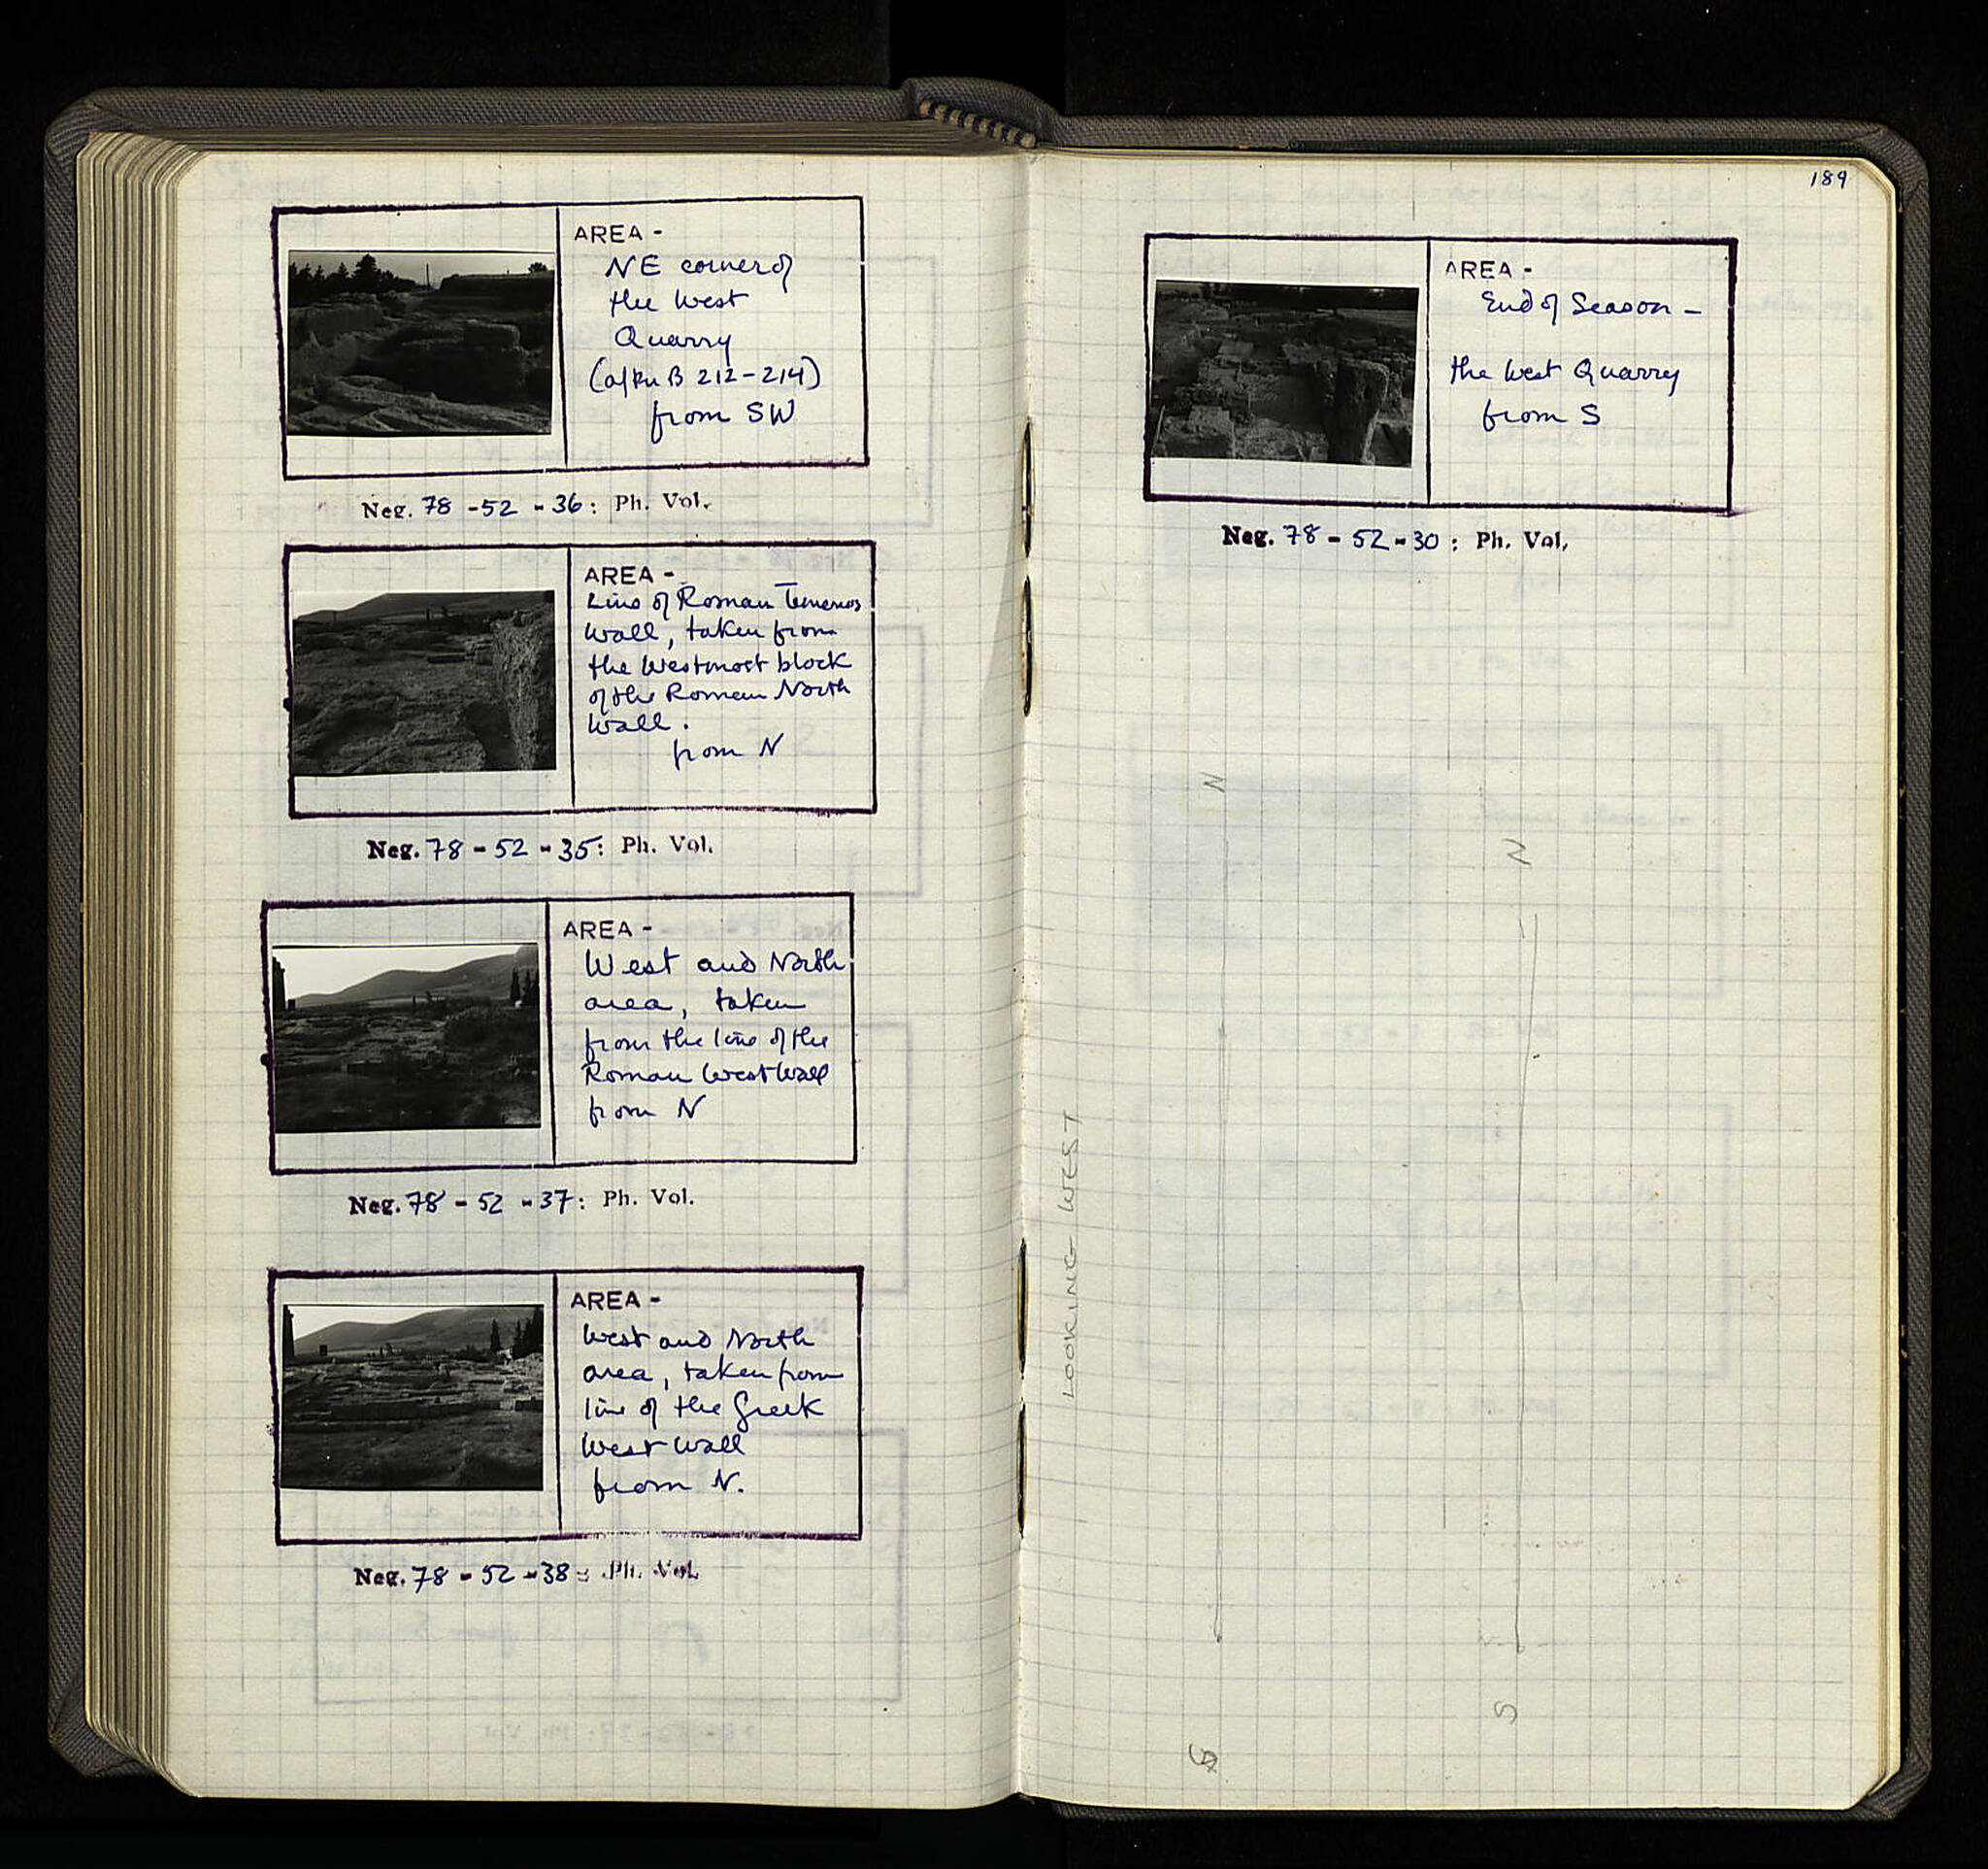 AREA -
NE corner of
the West
Quarry
(after B 212-214)
from SW
Neg. 78 - 52 - 36 : Ph. Vol.
AREA -
Line of Roman Temenos
wall, taken from
the Westmost block
of the Roman North
Wall.
from N
Neg. 78 - 52 - 35 : Ph. Vol.
AREA -
West and North
area, taken
from the line of the
Roman West Wall
from N
Neg. 78 - 52 - 37 : Ph. Vol.
AREA -
West and North
area, taken from
line of the Greek
West Wall
from N.
Neg. 78 - 52 - 38 : Ph. Vol.
189
AREA -
End of Season -
the West Quarry
from S
Neg. 78 - 52 - 30 : Ph. Vol.
N
N
LOOKING WEST
S
S